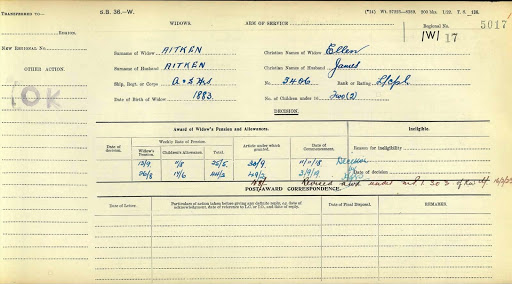 TRANSFERRED TO—
S.B. 36.—W.
WIDOWS.
ARM OF SERVICE
(*14) Wt. 37325—8259. 200 bks. 1/22. T. S. 128.
Region.
Regional No.
5017
|W| 17
NEW REGIONAL NO.
Surname of Widow AITKEN
Christian Names of Widow Ellen
Surname of Husband AITKEN
Christian Names of Husband James
OTHER ACTION.
Ship, Regt. or Corps A & S Hrs
No. 3406
Rank or Rating L/Cpl
Date of Birth of Widow 1883.
No. of Children under 16 Two (2)
OK
DECISION.
Award of Widow's Pension and Allowances.
Ineligible.
Date of decision.
Weekly Rate of Pension.
Widow's Pension.
Children's Allowance.
Total.
Article under which granted.
Date of Commencement.
Reason for ineligibility
13/9
11/8
25/5
11/11/18
26/8
17/6
44/2
3/9/19
Date of decision
Revised award under
POST-AWARD CORRESPONDENCE.
Date of Letter.
Particulars of action taken before giving any definite reply, e.g. date of acknowledgment, date of reference to L.C. or I.D., and date of reply.
Date of Final Disposal.
REMARKS.